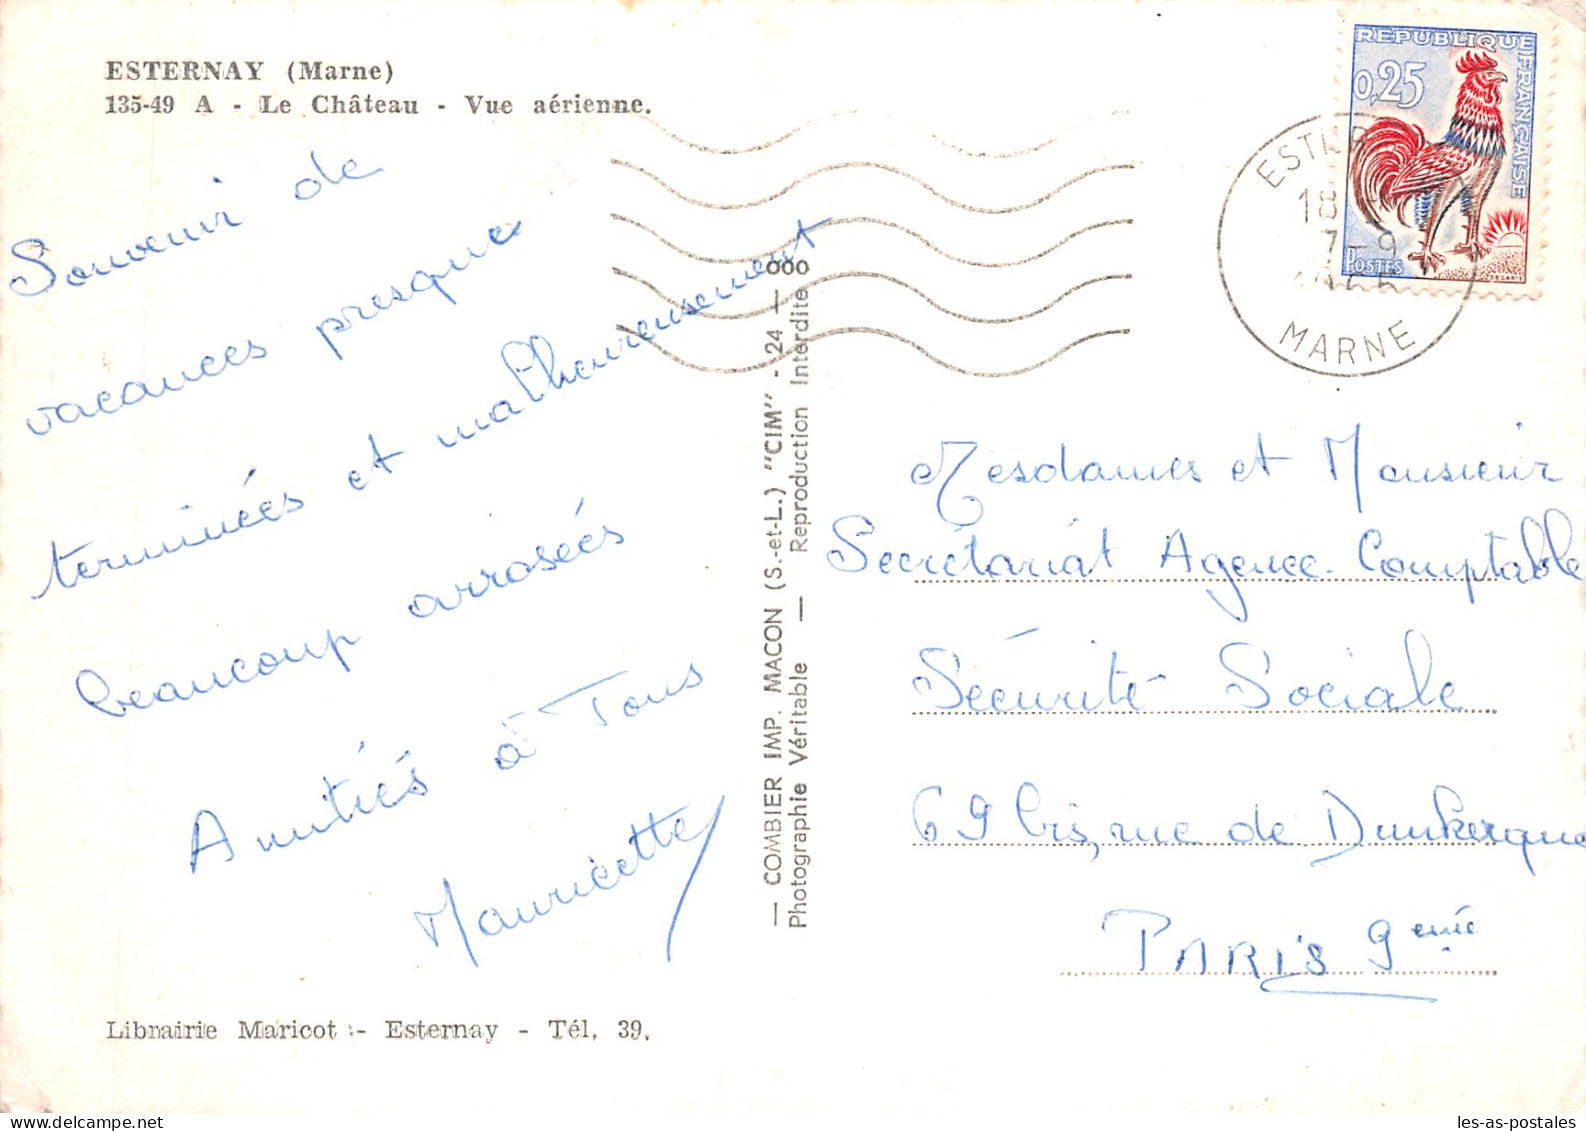 ESTERNAY (Marne)
135-49 A - Le Château - Vue aérienne.
Souvenir de
vacances presque
terminées et malheureusement
beaucoup arrosées
Amitiés à Tous
Mauricette
Librairie Maricot - Esternay - Tél. 39.
— COMBIER IMP. MACON (S.-et-L.) "CIM" - 24 — 000
Photographie Véritable — Reproduction Interdite
REPUBLIQUE FRANÇAISE
0,25
POSTES
DECARIS
18
7-9
MARNE
Mesdames et Monsieur
Secrétariat Agence Comptable
Sécurité Sociale
69 bis, rue de Dunkerque
PARIS 9eme
les-as-postales